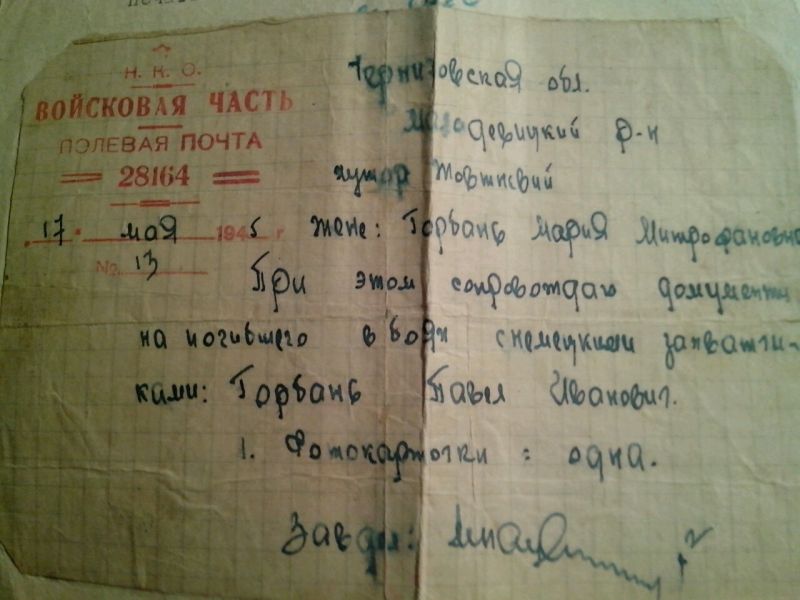 Н. К. О.
ВОЙСКОВАЯ ЧАСТЬ
ПОЛЕВАЯ ПОЧТА
28164
17 мая 1945 г
№ 13
Черниговская обл.
Малодевицкий р-н
хутор Жовтневий
жене: Горбань Мария Митрофановна
При этом сопровождаю документы
на погибшего в боях с немецкими захватчи-
ками: Горбань Павел Иванович.
1. Фотокарточки: одна.